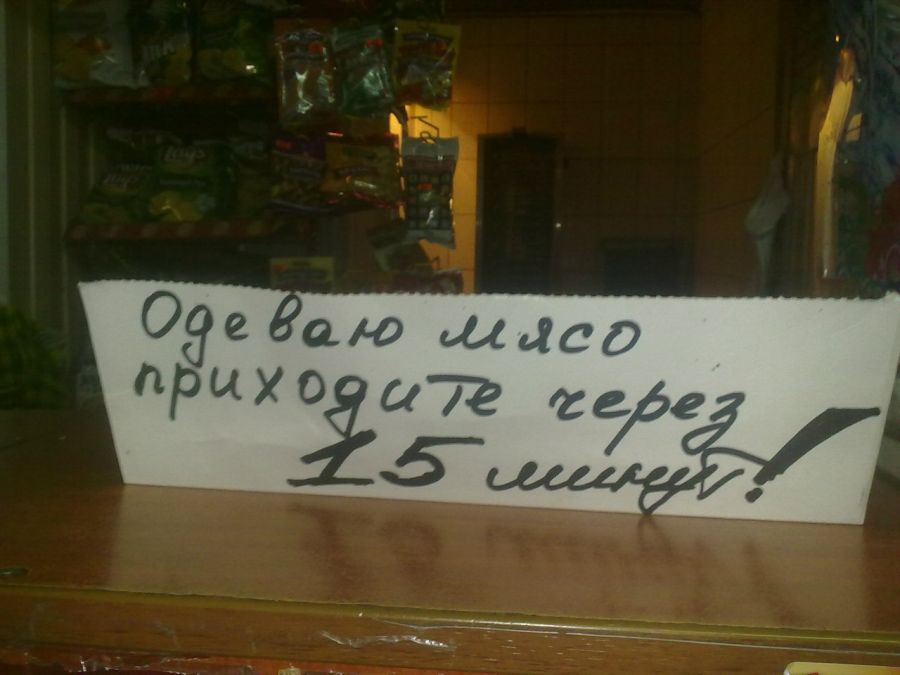 Одеваю мясо
приходите через
15 минут!
Lay's